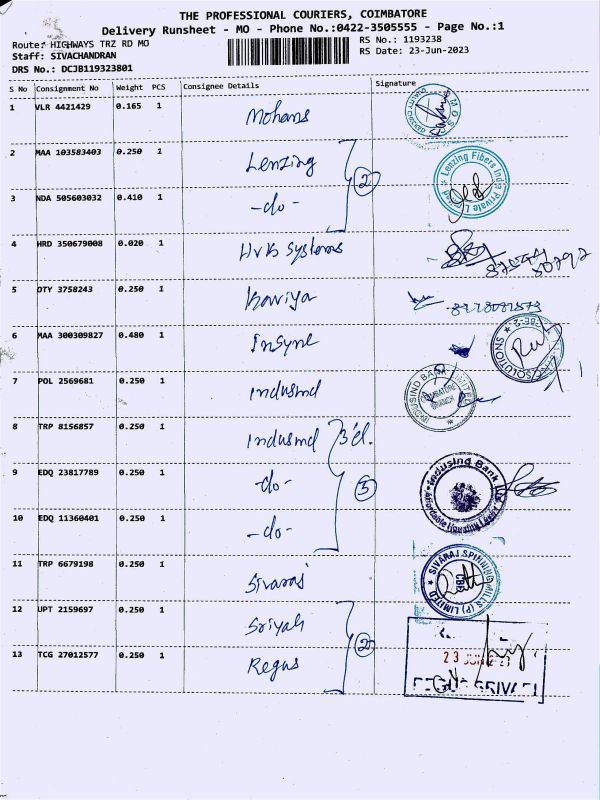 THE PROFESSIONAL COURIERS, COIMBATORE
Delivery Runsheet - MO - Phone No.:0422-3505555 - Page No.:1
Route: HIGHWAYS TRZ RD MO
RS No.: 1193238
Staff: SIVACHANDRAN
RS Date: 23-Jun-2023
DRS No.: DCJB119323801
S No Consignment No Weight PCS Consignee Details Signature
1 VLR 4421429 0.165 1 Mohans
QUALITY CHECKED
2 MAA 103583403 0.250 1 Lenzing
Lenzing Fibers India Private Limited
3 NDA 505603032 0.410 1 -do-
2
4 HRD 350679008 0.020 1 HVB Systems
5 OTY 3758243 0.250 1 Kaviya
6 MAA 300309827 0.480 1 Insyne
SOLUTIONS
7 POL 2569681 0.250 1 Indusind
INDUSIND BANK LIMITED
COIMBATORE
BRANCH
8 TRP 8156857 0.250 1 Indusind
9 EDQ 23817789 0.250 1 -do-
Indusind Bank Ltd
Affordable Housing
10 EDQ 11360401 0.250 1 -do-
11 TRP 6679198 0.250 1 Sivaraj
SIVARAJ SPINNING MILLS (P) LIMITED
CBE
12 UPT 2159697 0.250 1 Sriyah
2
13 TCG 27012577 0.250 1 Regus
23 JUN